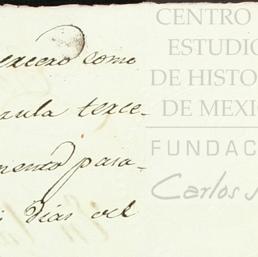 CENTRO
ESTUDIO
DE HISTO
DE MEXI
FUNDAC
Carlos S
tercero como
sula terce-
mento para-
dias del